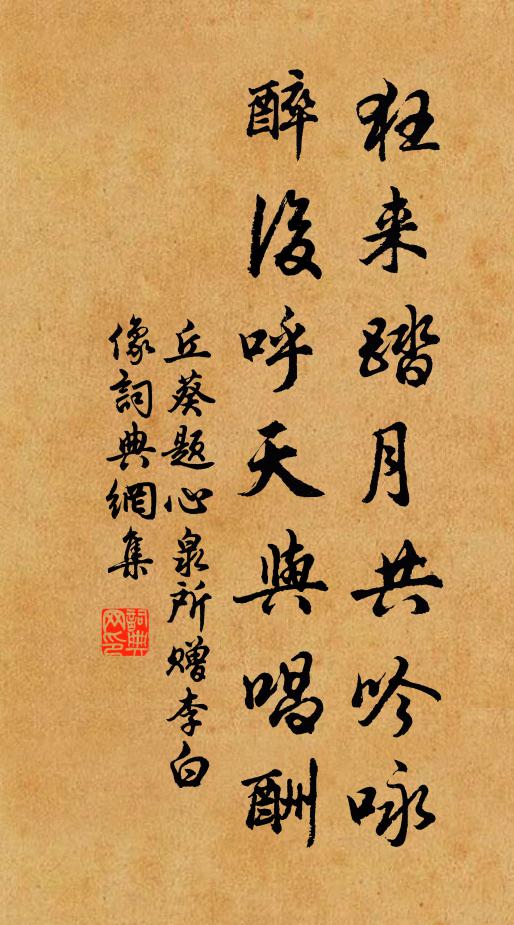 狂来踏月共吟咏
醉後呼天與唱酬
丘葵题心泉所赠李白
像詞典網集
詞典
网印